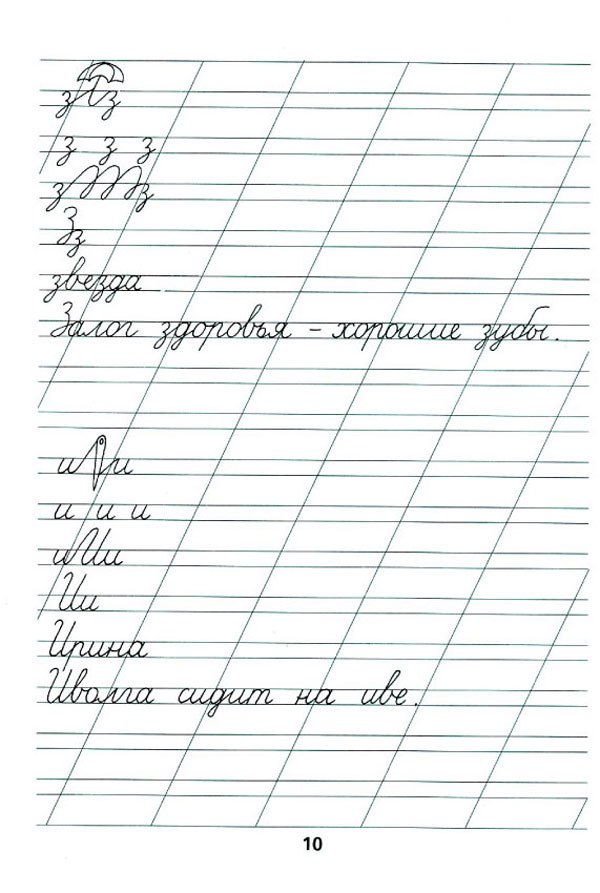 з з
з з з
з з
Зз
звезда
Залог здоровья - хорошие зубы.
и и
и и и
и Ии
Ии
Ирина
Иволга сидит на иве.
10